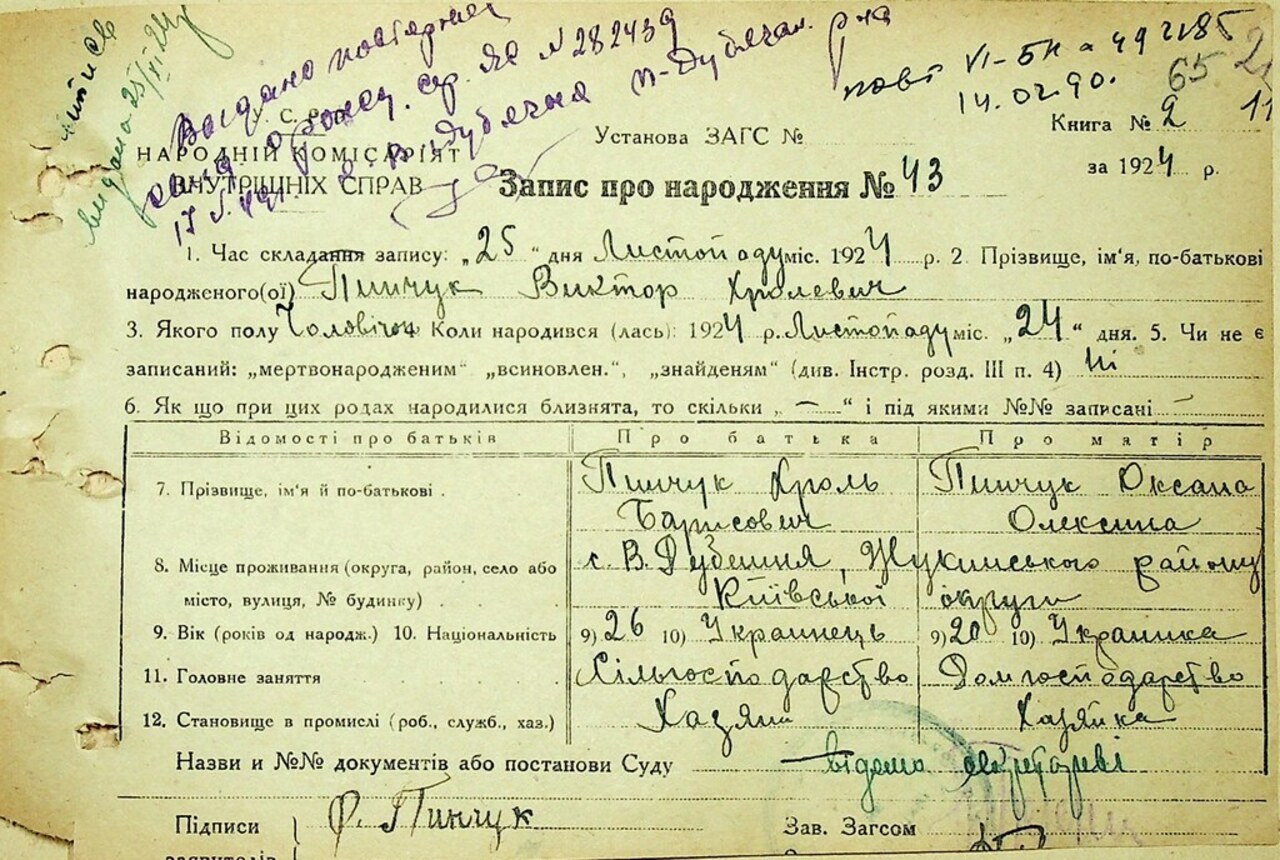 видана 25/XI 24 р
Видано повторне
серія ЯС N 282439
повт VI-БК а 49 2185
14.02.90.
65
11
У. С. Р. Р.
НАРОДНІЙ КОМІСАРІЯТ
ВНУТРІШНІХ СПРАВ
Установа ЗАГС №
Книга № 2
за 1924 р.
Запис про народження № 43
1. Час складання запису: „25“ дня Листопаду міс. 1924 р. 2. Прізвище, ім'я, по-батькові
народженого(ої) Пинчук Виктор Хролевич
3. Якого полу Чоловічої Коли народився (лась): 1924 р. Листопаду міс. „24“ дня. 5. Чи не є
записаний: „мертвонародженим“ „всиновлен.“, „знайденям“ (див. Інстр. розд. III п. 4) Ні
6. Як що при цих родах народилися близнята, то скільки „—“ і під якими №№ записані —
Відомості про батьків Про батька Про матір
7. Прізвище, ім'я й по-батькові . Пинчук Хроль Пинчук Оксана
Барисович Олексіина
8. Місце проживання (округа, район, село або с. В. Дубешня, Жукинського району
місто, вулиця, № будинку) . Київської округи
9. Вік (років од народж.) 10. Національність 9) 26 10) Украинець 9) 20 10) Украинка
11. Головне заняття Сільгосподарство Домгосподарство
12. Становище в промислі (роб., служб., хаз.) Хазяин Хазяйка
Назви и №№ документів або постанови Суду відомо секретареві
Підписи Ф. Пинчук Зав. Загсом
заявителів